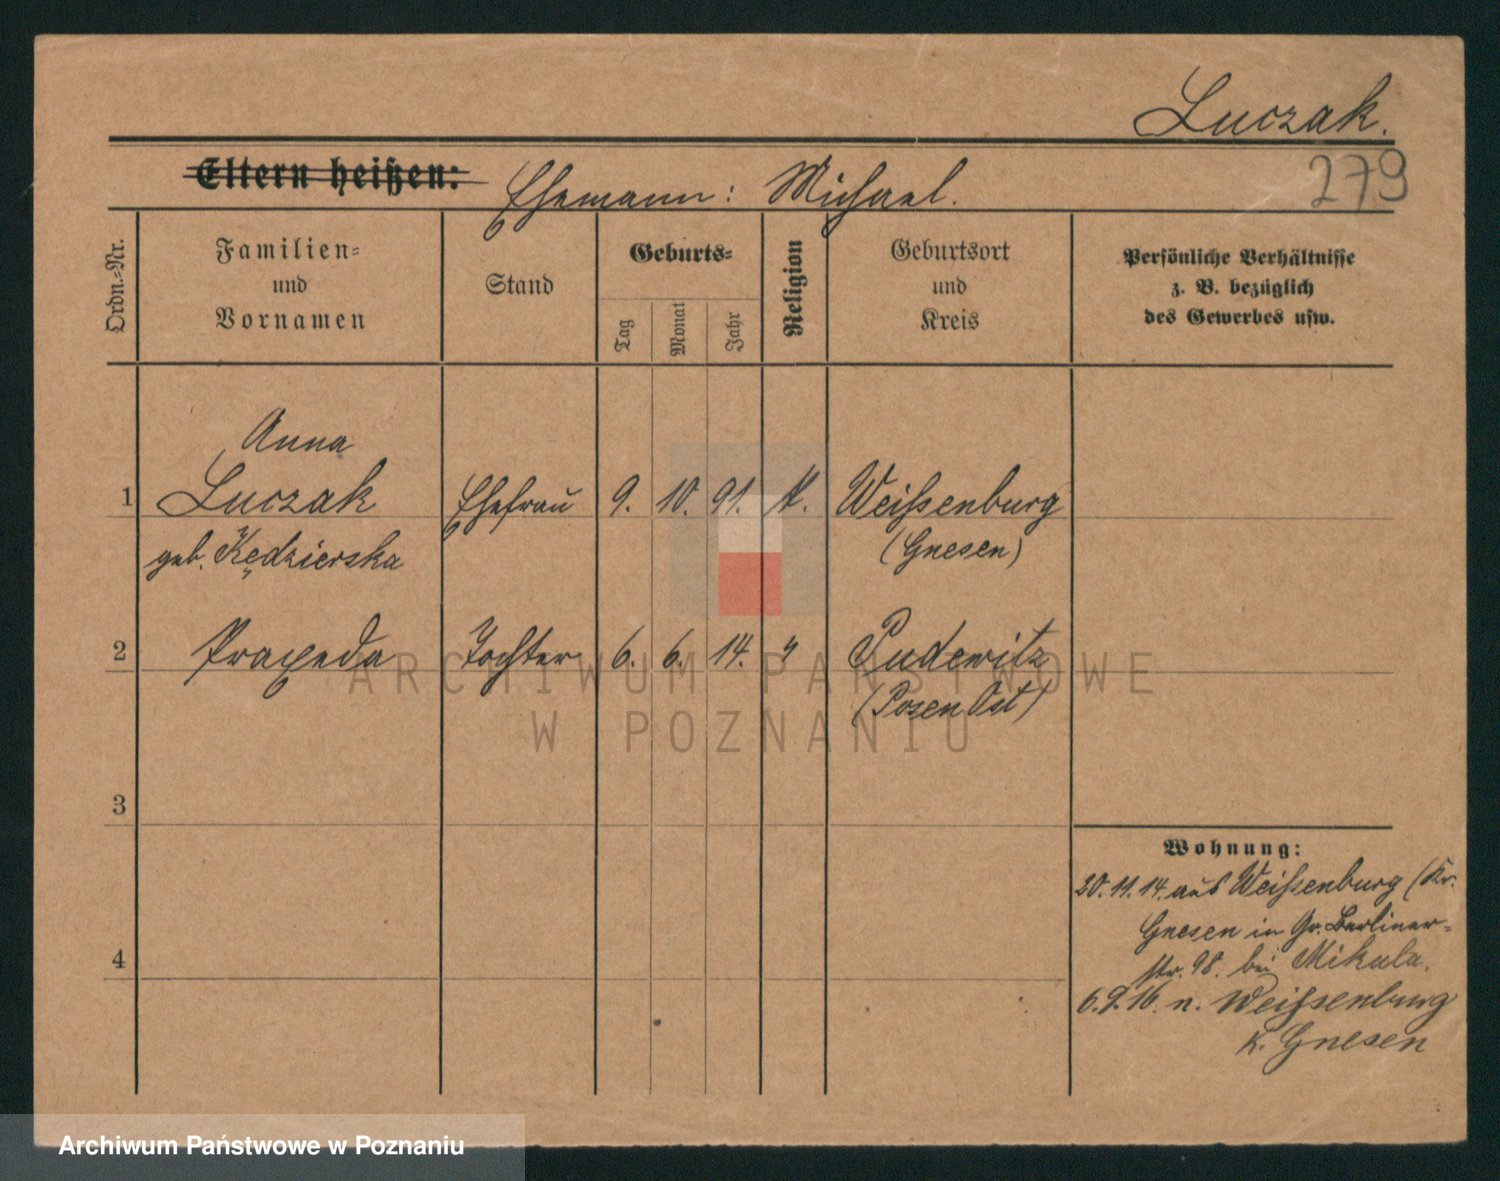 Luczak.
279
Eltern heißen: Ehemann: Michael.
Ordn.-Nr.
Familien-
und
Vornamen
Stand
Geburts-
Tag
Monat
Jahr
Religion
Geburtsort
und
Kreis
Persönliche Verhältnisse
z. B. bezüglich
des Gewerbes usw.
Anna
1 Luczak Ehefrau 9. 10. 91. K. Weißenburg
geb. Kędzierska (Gnesen)
2 Praxeda Tochter 6. 6. 14. " Pudewitz
(Posen Ost)
3
4
Wohnung:
20.11.14. aus Weißenburg (Kr.
Gnesen in Gr. Berliner-
str. 98. bei Mikula.
6.9.16. n. Weißenburg
K. Gnesen
ARCHIWUM PAŃSTWOWE
W POZNANIU
Archiwum Państwowe w Poznaniu